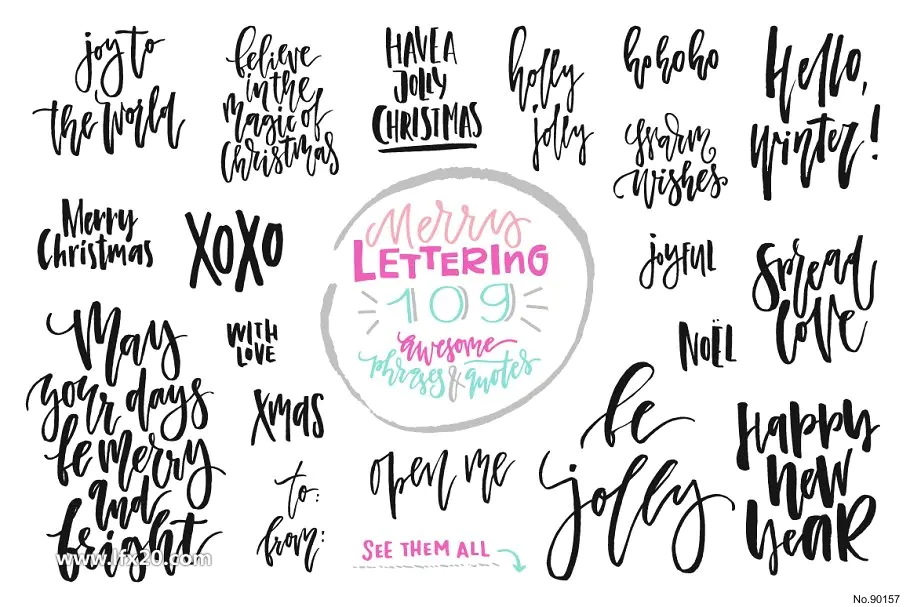 joy to
the world
believe
in the
magic of
Christmas
HAVE A
JOLLY
CHRISTMAS
holly
jolly
hohoho
warm
wishes
Hello,
winter!
Merry
Christmas
XOXO
Merry
LETTERING
109
awesome
phrases & quotes
joyful
Spread
love
NOËL
May
your days
be merry
and
bright
WITH
LOVE
Xmas
to:
from:
open me
SEE THEM ALL
be
jolly
Happy
new
year
www.lfx20.com
No.90157